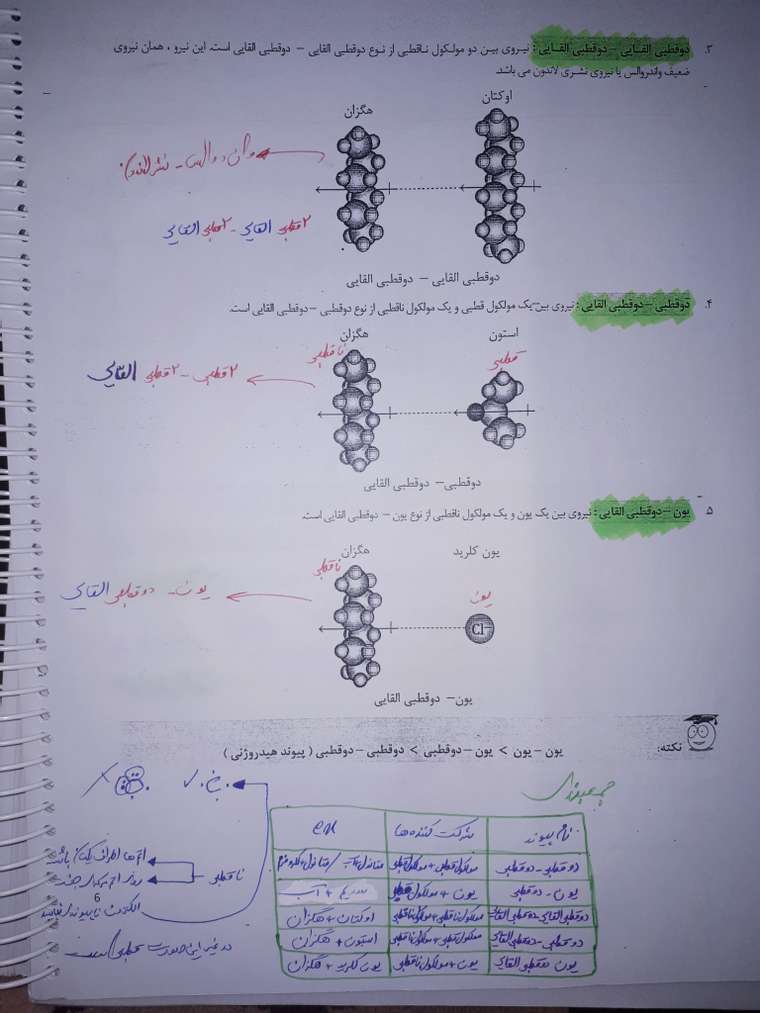 ۳. دوقطبی القـایی – دوقطبی القـایی : نیـروی بیـن دو مولـکول ناقطبی از نـوع دوقطبی القایی – دوقطبی القایی است. این نیرو ، همان نیروی
ضعیف واندروالس یا نیروی نشـری لاندون می باشد.
اوکتان
هگزان
وان دوالس - نشر لاندن
۲ قطبی القایی - ۲ قطبی القایی
دوقطبی القایی – دوقطبی القایی
۴. دوقطبی – دوقطبی القایی : نیروی بین یک مولکول قطبی و یک مولکول ناقطبی از نوع دوقطبی – دوقطبی القایی است.
استون
هگزان
قطبی
ناقطبی
۲ قطبی - ۲ قطبی القایی
دوقطبی – دوقطبی القایی
۵ یون – دوقطبی القایی : نیروی بین یک یون و یک مولکول ناقطبی از نوع یون – دوقطبی القایی است.
یون کلرید
هگزان
یون
ناقطبی
Cl⁻
یون - دوقطبی القایی
یون – دوقطبی القایی
نکته: یون – یون > یون – دوقطبی > دوقطبی – دوقطبی ( پیوند هیدروژنی )
جمع‌بندی
نام پیوند شرکت کننده ها en
دوقطبی - دوقطبی مولکول قطبی + مولکول قطبی
یون - دوقطبی یون + مولکول قطبی سدیم + آب
دوقطبی القایی - دوقطبی القایی مولکول ناقطبی + مولکول ناقطبی اوکتان + هگزان
دوقطبی - دوقطبی القایی مولکول قطبی + مولکول ناقطبی استون + هگزان
یون دوقطبی القایی یون + مولکول ناقطبی یون کلرید + هگزان
ناقطبی
اتم ها اطراف یکسان باشد
روی اتم مرکزی جفت
الکترون ناپیوندی نباشد
در غیر این صورت قطبی است
6